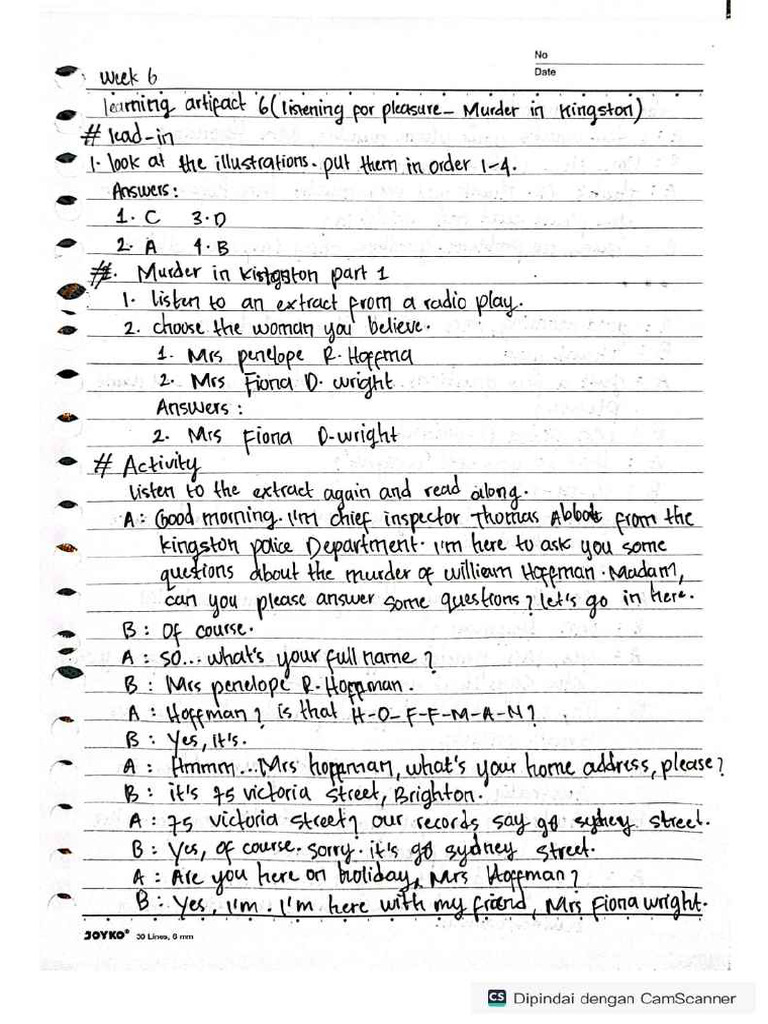 No
Date
week 6
learning artifact 6 (listening for pleasure - Murder in Kingston)
# lead-in
1. look at the illustrations. put them in order 1-4.
Answers :
1. C 3. D
2. A 4. B
#. Murder in Kingston part 1
1. listen to an extract from a radio play.
2. choose the woman you believe.
1. Mrs penelope R. Hoffma
2. Mrs Fiona D. wright
Answers :
2. Mrs Fiona D-wright
# Activity
listen to the extract again and read along.
A : Good morning. I'm chief inspector Thomas Abbot from the
kingston police Department. I'm here to ask you some
questions about the murder of william Hoffman. Madam,
can you please answer some questions? let's go in here.
B : Of course.
A : so... what's your full name ?
B : Mrs penelope R. Hoffman.
A : Hoffman? is that H-O-F-F-M-A-N?
B : Yes, it's.
A : Hmmm... Mrs hoffman, what's your home address, please?
B : it's 75 victoria street, Brighton.
A : 75 victoria street? our records say 98 sydney street.
B : Yes, of course. sorry. it's 98 sydney street.
A : Are you here on holiday, Mrs Hoffman?
B : Yes, I'm. I'm here with my friend, Mrs Fiona wright.
JOYKO® 30 Lines, 6 mm
CS Dipindai dengan CamScanner